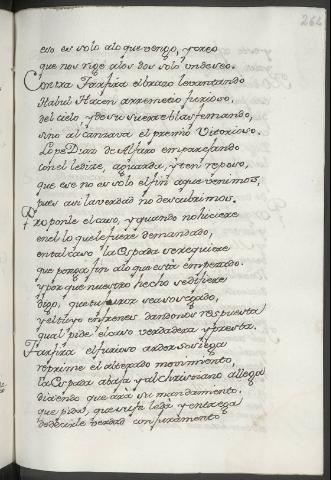 262
eso es solo a lo que vengo, y creo
que nos rige a los dos solo un deseo.
Contra Farfira el brazo levantando
Habul Hacen arremetio furioso,
del cielo, y de su suerte blasfemando,
sino alcanzava el premio Vitorioso.
Lope Diaz de Alfaro emparejando
con el le dize, aguarda, y ten reposo,
que ese no es solo el fin a que venimos,
pues asi la verdad no descubrimos.
Proponle el caso, y quando no hiciere
en el lo que le fuere demandado,
en tal caso la Espada se requiere
que ponga fin a lo que està empezado.
y porque nuestro hecho se difiere
digo, que tu furor sea sosegado,
y el tuyo enfrenes dandonos respuesta
qual pide el caso verdadera y presta.
Farfira el furioso ardor sosiega
reprime el alterado movimiento,
la Espada abaja y al Christiano allega
diciendo que arà su mandamiento.
que pida, que su fe le dà y entrega
de decirle verdad con juramento